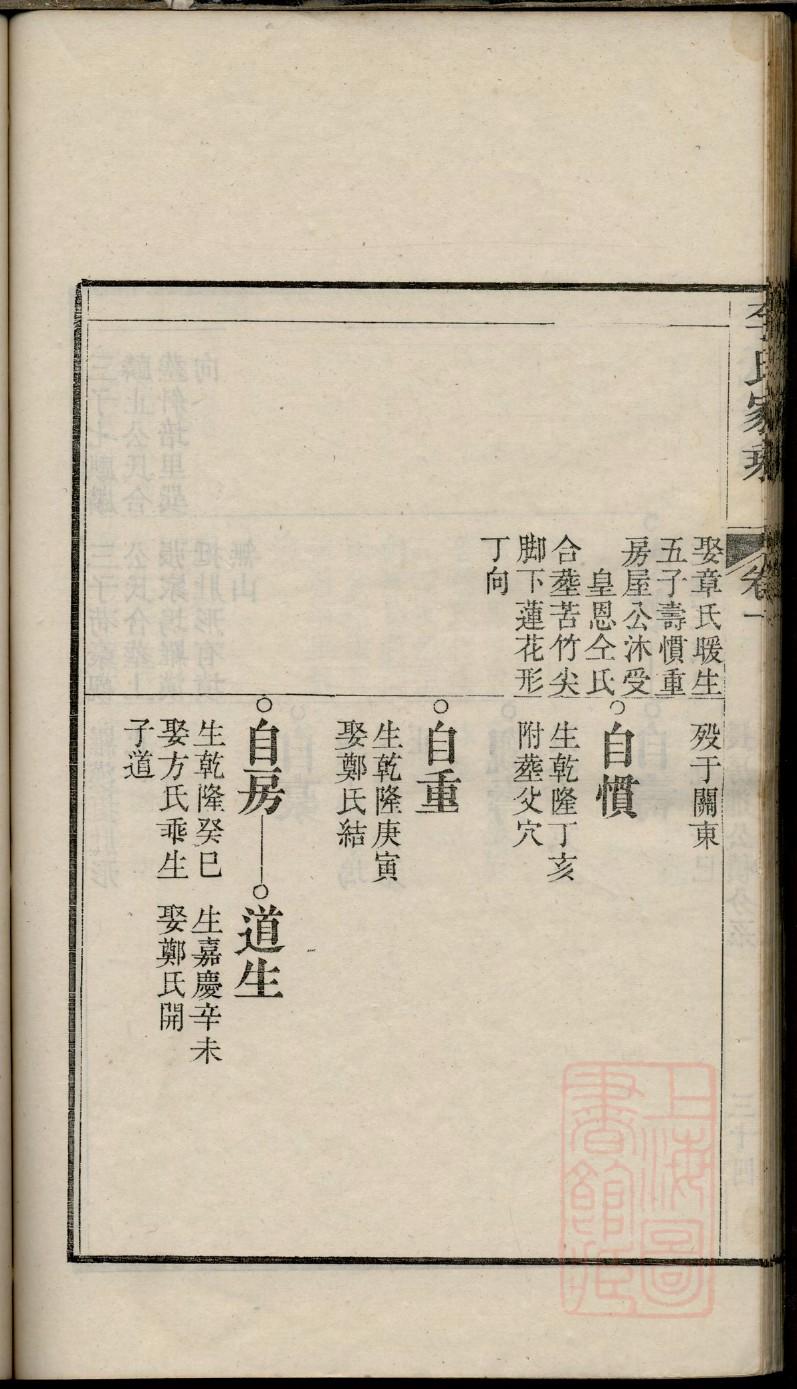 李氏家乘
卷一
娶章氏聝生
五子壽慣重
房屋公沐受
皇恩仝氏
合塟苦竹尖
脚下蓮花形
丁向
歿于關東
自慣
生乾隆丁亥
附塟父穴
自重
生乾隆庚寅
娶鄭氏結
自房
生乾隆癸巳
娶方氏乖生
子道
道生
生嘉慶辛未
娶鄭氏開
上海圖
書館藏